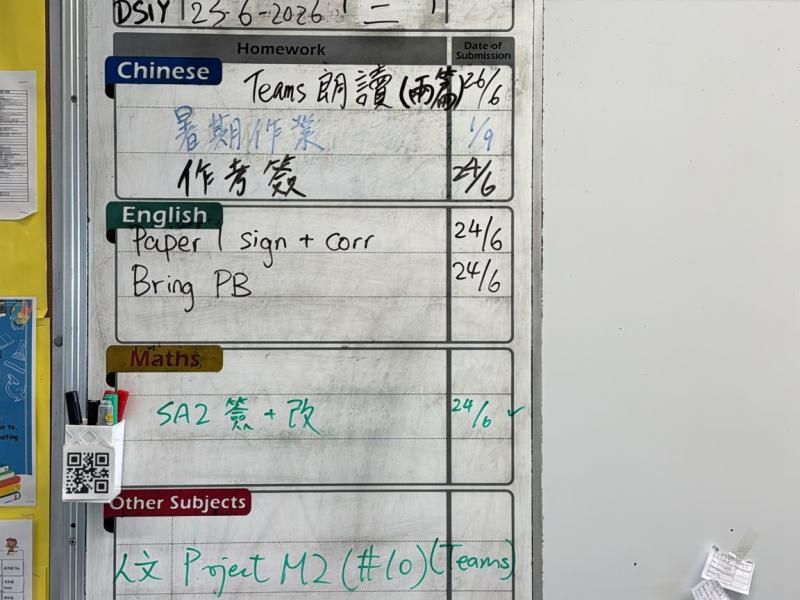 DSIY 23-6-2026 (二)
Homework Date of Submission
Chinese
Teams 朗讀 (兩篇) 26/6
暑期作業 1/9
作考簽 24/6
English
Paper 1 sign + corr 24/6
Bring PB 24/6
Maths
SA2 簽 + 改 24/6 ✓
Other Subjects
人文 Project M2 (#10) (Teams)